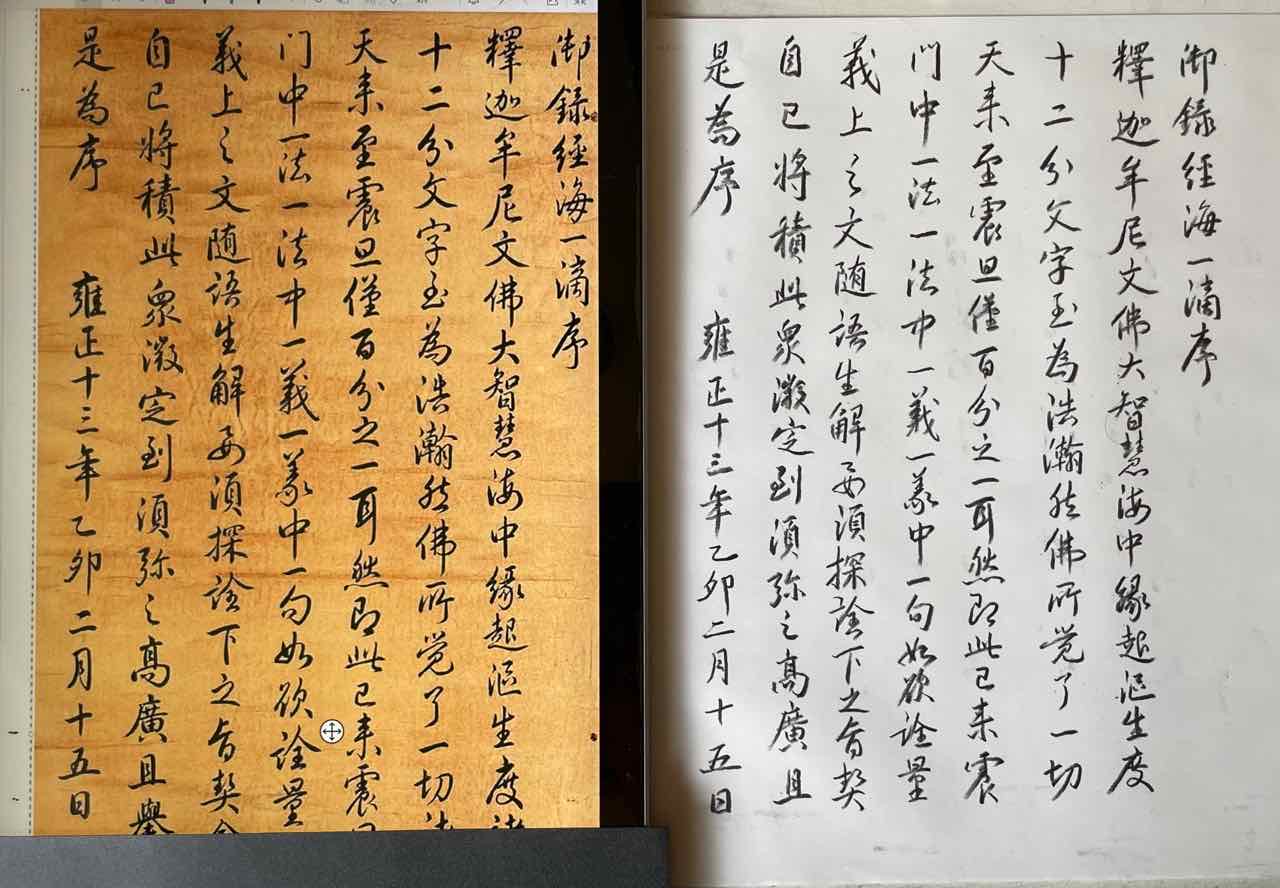 御録經海一滴序
釋迦牟尼文佛大智慧海中緣起漚生度諸
十二分文字至為浩瀚然佛所覺了一切法
天来至震旦僅百分之一耳然即此已来震旦
门中一法一法中一義一義中一句如欲詮量
義上之文随語生解要須探詮下之旨契会
自己將積此衆微定到須弥之高廣且舉
是為序 雍正十三年乙卯二月十五日
御録經海一滴序
釋迦牟尼文佛大智慧海中緣起漚生度
十二分文字至為浩瀚然佛所覺了一切
天来至震旦僅百分之一耳然即此已来震
门中一法一法中一義一義中一句如欲詮量
義上之文随語生解要須探詮下之旨契
自己將積此衆微定到須弥之高廣且
是為序 雍正十三年乙卯二月十五日